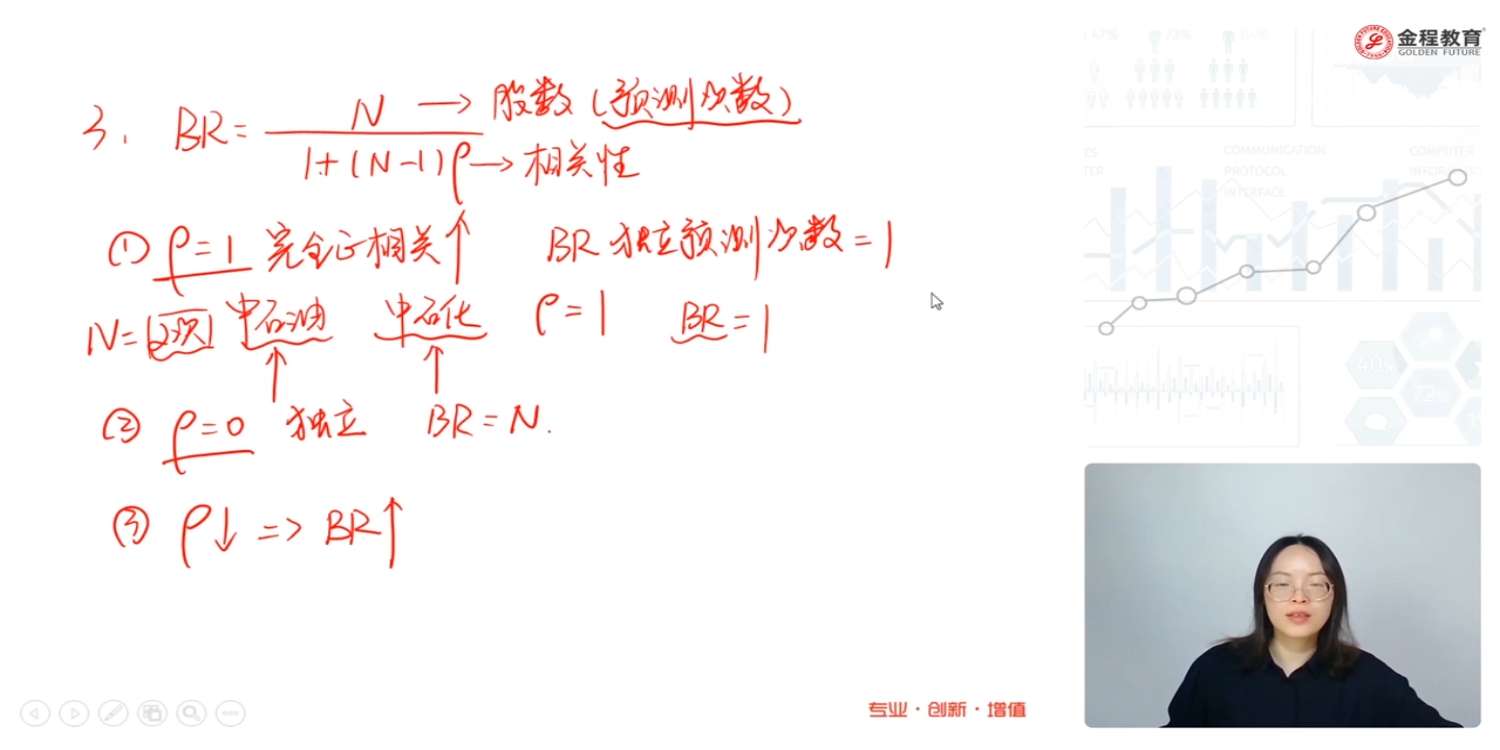 金程教育
GOLDEN FUTURE
3. BR = N / (1+(N-1)ρ)
N → 股数 (预测次数)
ρ → 相关性
① ρ=1 完全正相关↑ BR 独立预测次数=1
N=2次 中石油 中石化 ρ=1 BR=1
↑ ↑
② ρ=0 独立 BR=N.
③ ρ↓ => BR↑
COMMUNICATION
PROTOCOL
INTERFACE
COMPUTER
专业·创新·增值